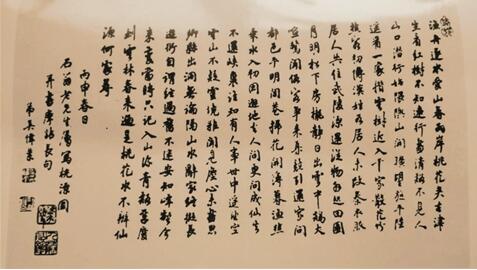 漁舟逐水愛山春兩岸桃花夾古津
坐看紅樹不知遠行盡清溪不見人
山口潛行始隈隩山開曠望旋平陸
遙看一處攢雲樹近入千家散花竹
樵客初傳漢姓名居人未改秦衣服
居人共住武陵源還從物外起田園
月明松下房櫳靜日出雲中雞犬
喧驚聞俗客爭來集競引還家問
都邑平明閭巷掃花開薄暮漁樵
乘水入初因避地去人間更問成仙遂
不還峽裏誰知有人事世中遙望空
雲山不疑靈境難聞見塵心未盡思
鄉縣出洞無論隔山水辭家終擬長
遊衍自謂經過舊不迷安知峰壑今
來變當時只記入山深青谿幾度
到雲林春來遍是桃花水不辨仙
源何處尋
丙申春日
石翁老先生屬寫桃源圖
并書摩詰長句
弟吳偉業